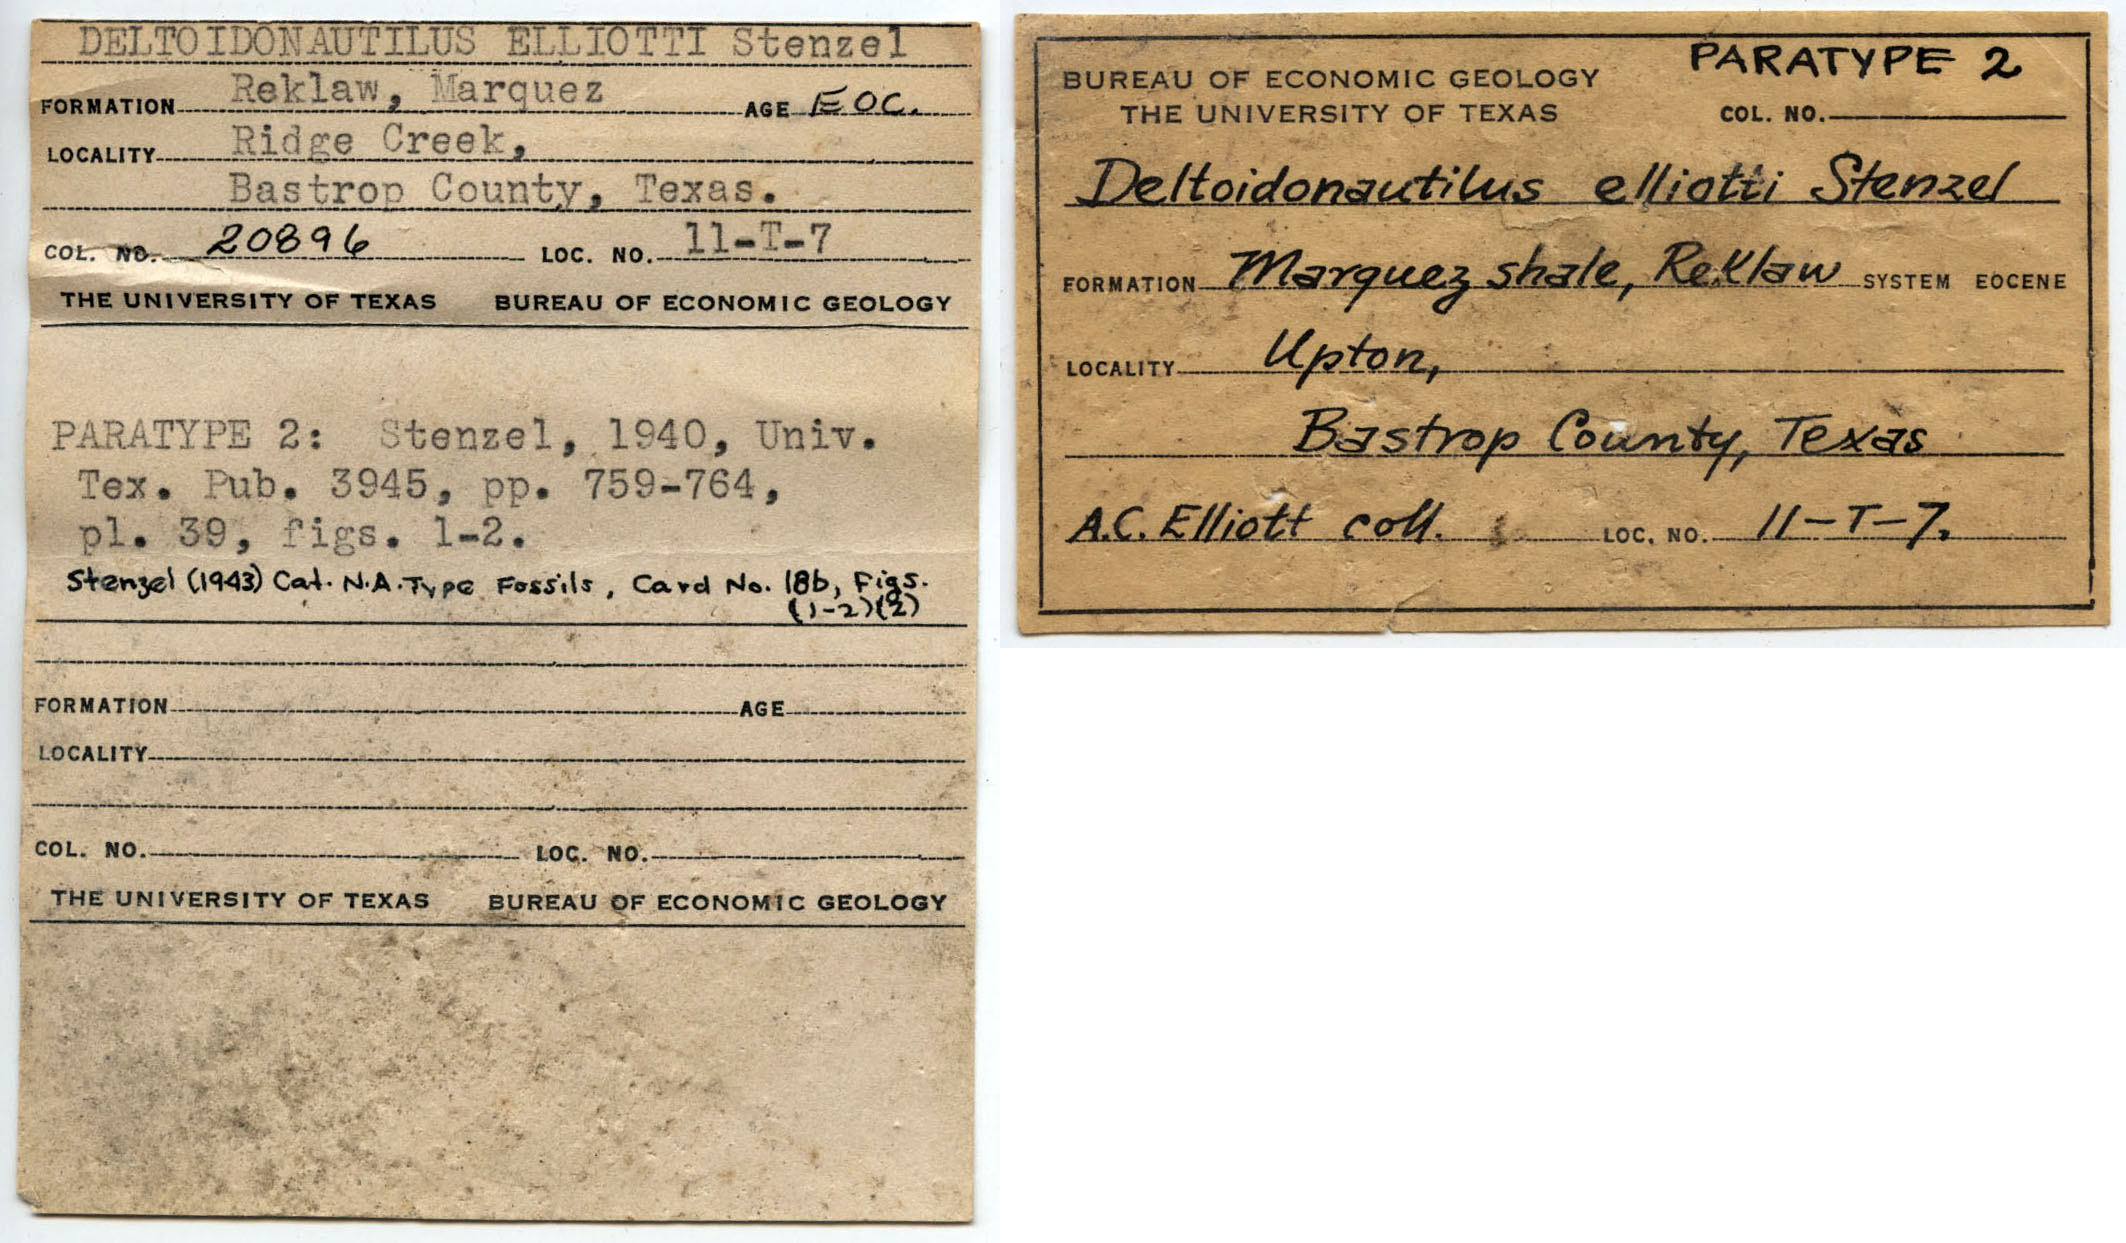 DELTOIDONAUTILUS ELLIOTTI Stenzel
FORMATION Reklaw, Marquez AGE EOC.
LOCALITY Ridge Creek,
Bastrop County, Texas.
COL. NO. 20896 LOC. NO. 11-T-7
THE UNIVERSITY OF TEXAS BUREAU OF ECONOMIC GEOLOGY
PARATYPE 2: Stenzel, 1940, Univ.
Tex. Pub. 3945, pp. 759-764,
pl. 39, figs. 1-2.
Stenzel (1943) Cat. N.A. Type Fossils, Card No. 18b, Figs.
(1-2)(2)
FORMATION AGE
LOCALITY
COL. NO. LOC. NO.
THE UNIVERSITY OF TEXAS BUREAU OF ECONOMIC GEOLOGY
PARATYPE 2
BUREAU OF ECONOMIC GEOLOGY
THE UNIVERSITY OF TEXAS COL. NO.
Deltoidonautilus elliotti Stenzel
FORMATION Marquez shale, Reklaw SYSTEM EOCENE
LOCALITY Upton,
Bastrop County, Texas
A.C. Elliott coll. LOC. NO. 11-T-7.